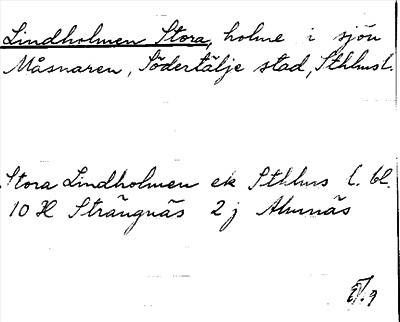 Lindholmen Stora, holme i sjön
Måsnaren, Södertälje stad, Sthlmsl.
Stora Lindholmen ek Sthlms l. bl.
10 H Strängnäs 2 j Almnäs